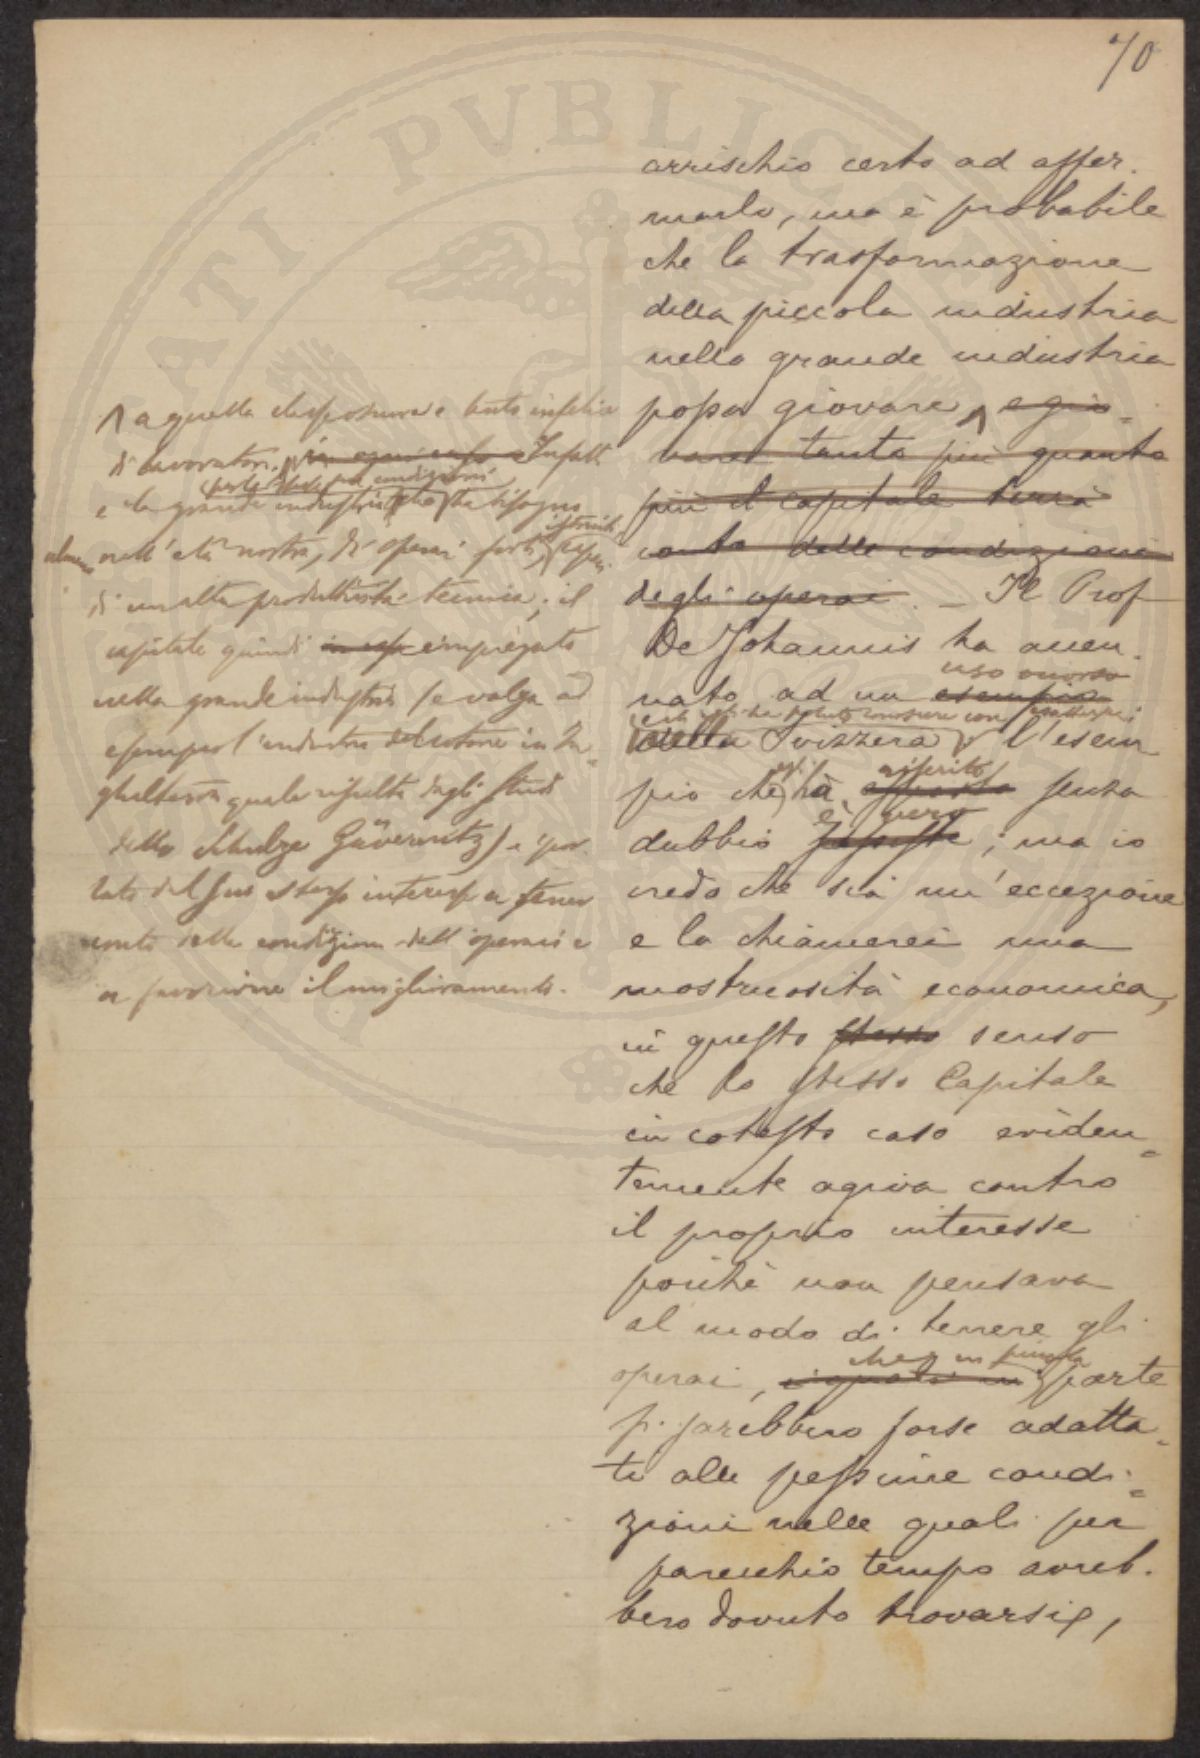 70
arrischio certo ad affer-
marlo, ma è probabile
che la trasformazione
della piccola industria
nella grande industria
possa giovare, ^ e gio-
vare tanto più quanto
più il capitale terrà
conto delle condizioni
degli operai. — Il Prof
De Johannis ha accen-
uso onorso
nato ad un esempio
della Svizzera, l'esem-
riferito
pio che ha esposto senza
è vero
dubbio sussiste; ma io
credo che sia un'eccezione
e la chiamerei una
mostruosità economica,
in questo stesso senso
che lo stesso Capitale
in cotesto caso eviden-
temente agiva contro
il proprio interesse
poichè non pensava
al modo di tenere gli
che in piccola
operai, i quali in parte
si sarebbero forse adatta-
ti alle pessime condi-
zioni nelle quali per
parecchio tempo avreb-
bero dovuto trovarsi,
^ a quella classe e tanto infelice
di lavoratori. in ogni caso Infatti
condizioni
e la grande industria che ha bisogno
istruiti
nell'età nostra, di operai forti, capaci
di un'alta produttività tecnica; il
capitale quindi impiegato
nella grande industria (e valga ad
esempio l'industria del cotone in In-
ghilterra quale risulta dagli studi
dello Schulze Gävernitz) è por-
tato dal suo stesso interesse a tener
conto delle condizioni dell'operaio e
a favorirne il miglioramento.
PVBLICAE